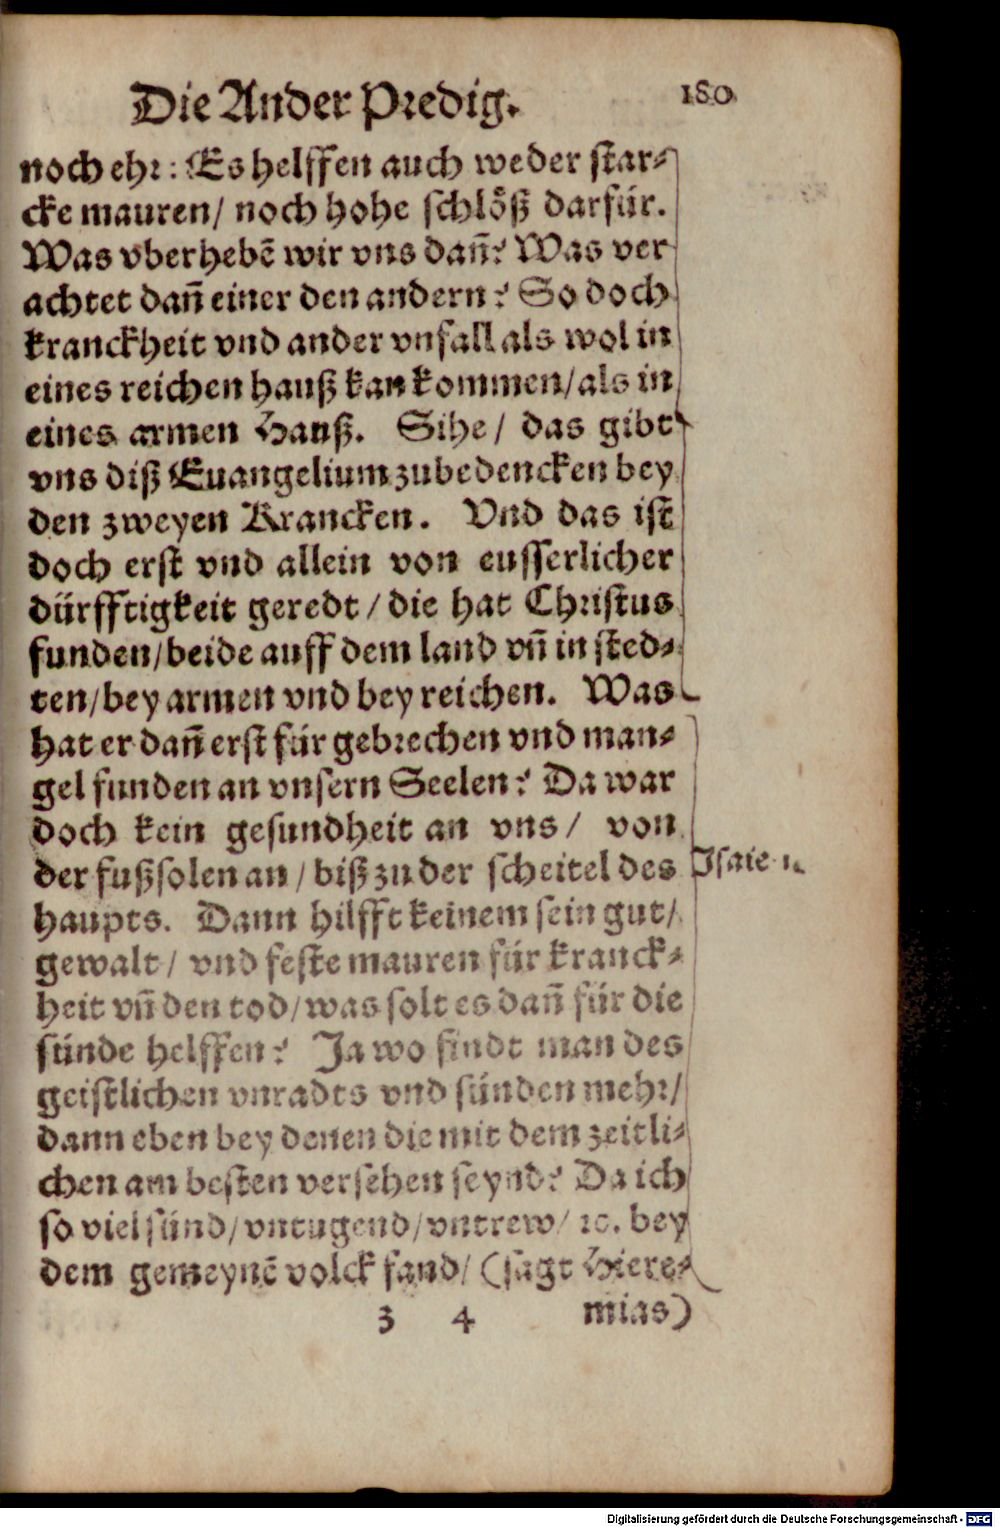 Die Ander Predig.
180
noch ehr: Es helffen auch weder star⸗
cke mauren/ noch hohe schlöß darfür.
Was vberhebẽ wir vns dañ? Was ver
achtet dañ einer den andern? So doch
kranckheit vnd ander vnfall als wol in
eines reichen hauß kan kommen/ als in
eines armen Hauß. Sihe/ das gibt
vns diß Euangelium zubedencken bey
den zweyen Krancken. Vnd das ist
doch erst vnd allein von eusserlicher
dürfftigkeit geredt/ die hat Christus
funden/ beide auff dem land vñ in sted⸗
ten/ bey armen vnd bey reichen. Was
hat er dañ erst für gebrechen vnd man⸗
gel funden an vnsern Seelen? Da war
doch kein gesundheit an vns/ von
der fußsolen an/ biß zu der scheitel des
Isaie
haupts. Dann hilfft keinem sein gut/
gewalt/ vnd feste mauren für kranck⸗
heit vñ den tod/ was solt es dañ für die
sünde helffen? Ja wo findt man des
geistlichen vnradts vnd sünden mehr/
dann eben bey denen die mit dem zeitli⸗
chen am besten versehen seynd? Da ich
so viel sünd/ vntugend/ vntrew/ ꝛc. bey
dem gemeynẽ volck fand/ (sagt Hiere⸗
z 4
mias)
Digitalisierung gefördert durch die Deutsche Forschungsgemeinschaft - DFG